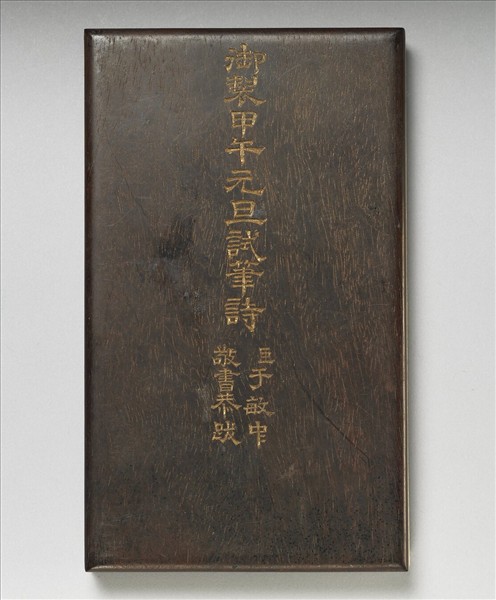 御製甲午元旦試筆詩
臣于敏中
敬書恭跋